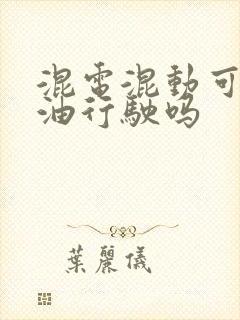 混電混動可
油行駛嗎
葉麗儀